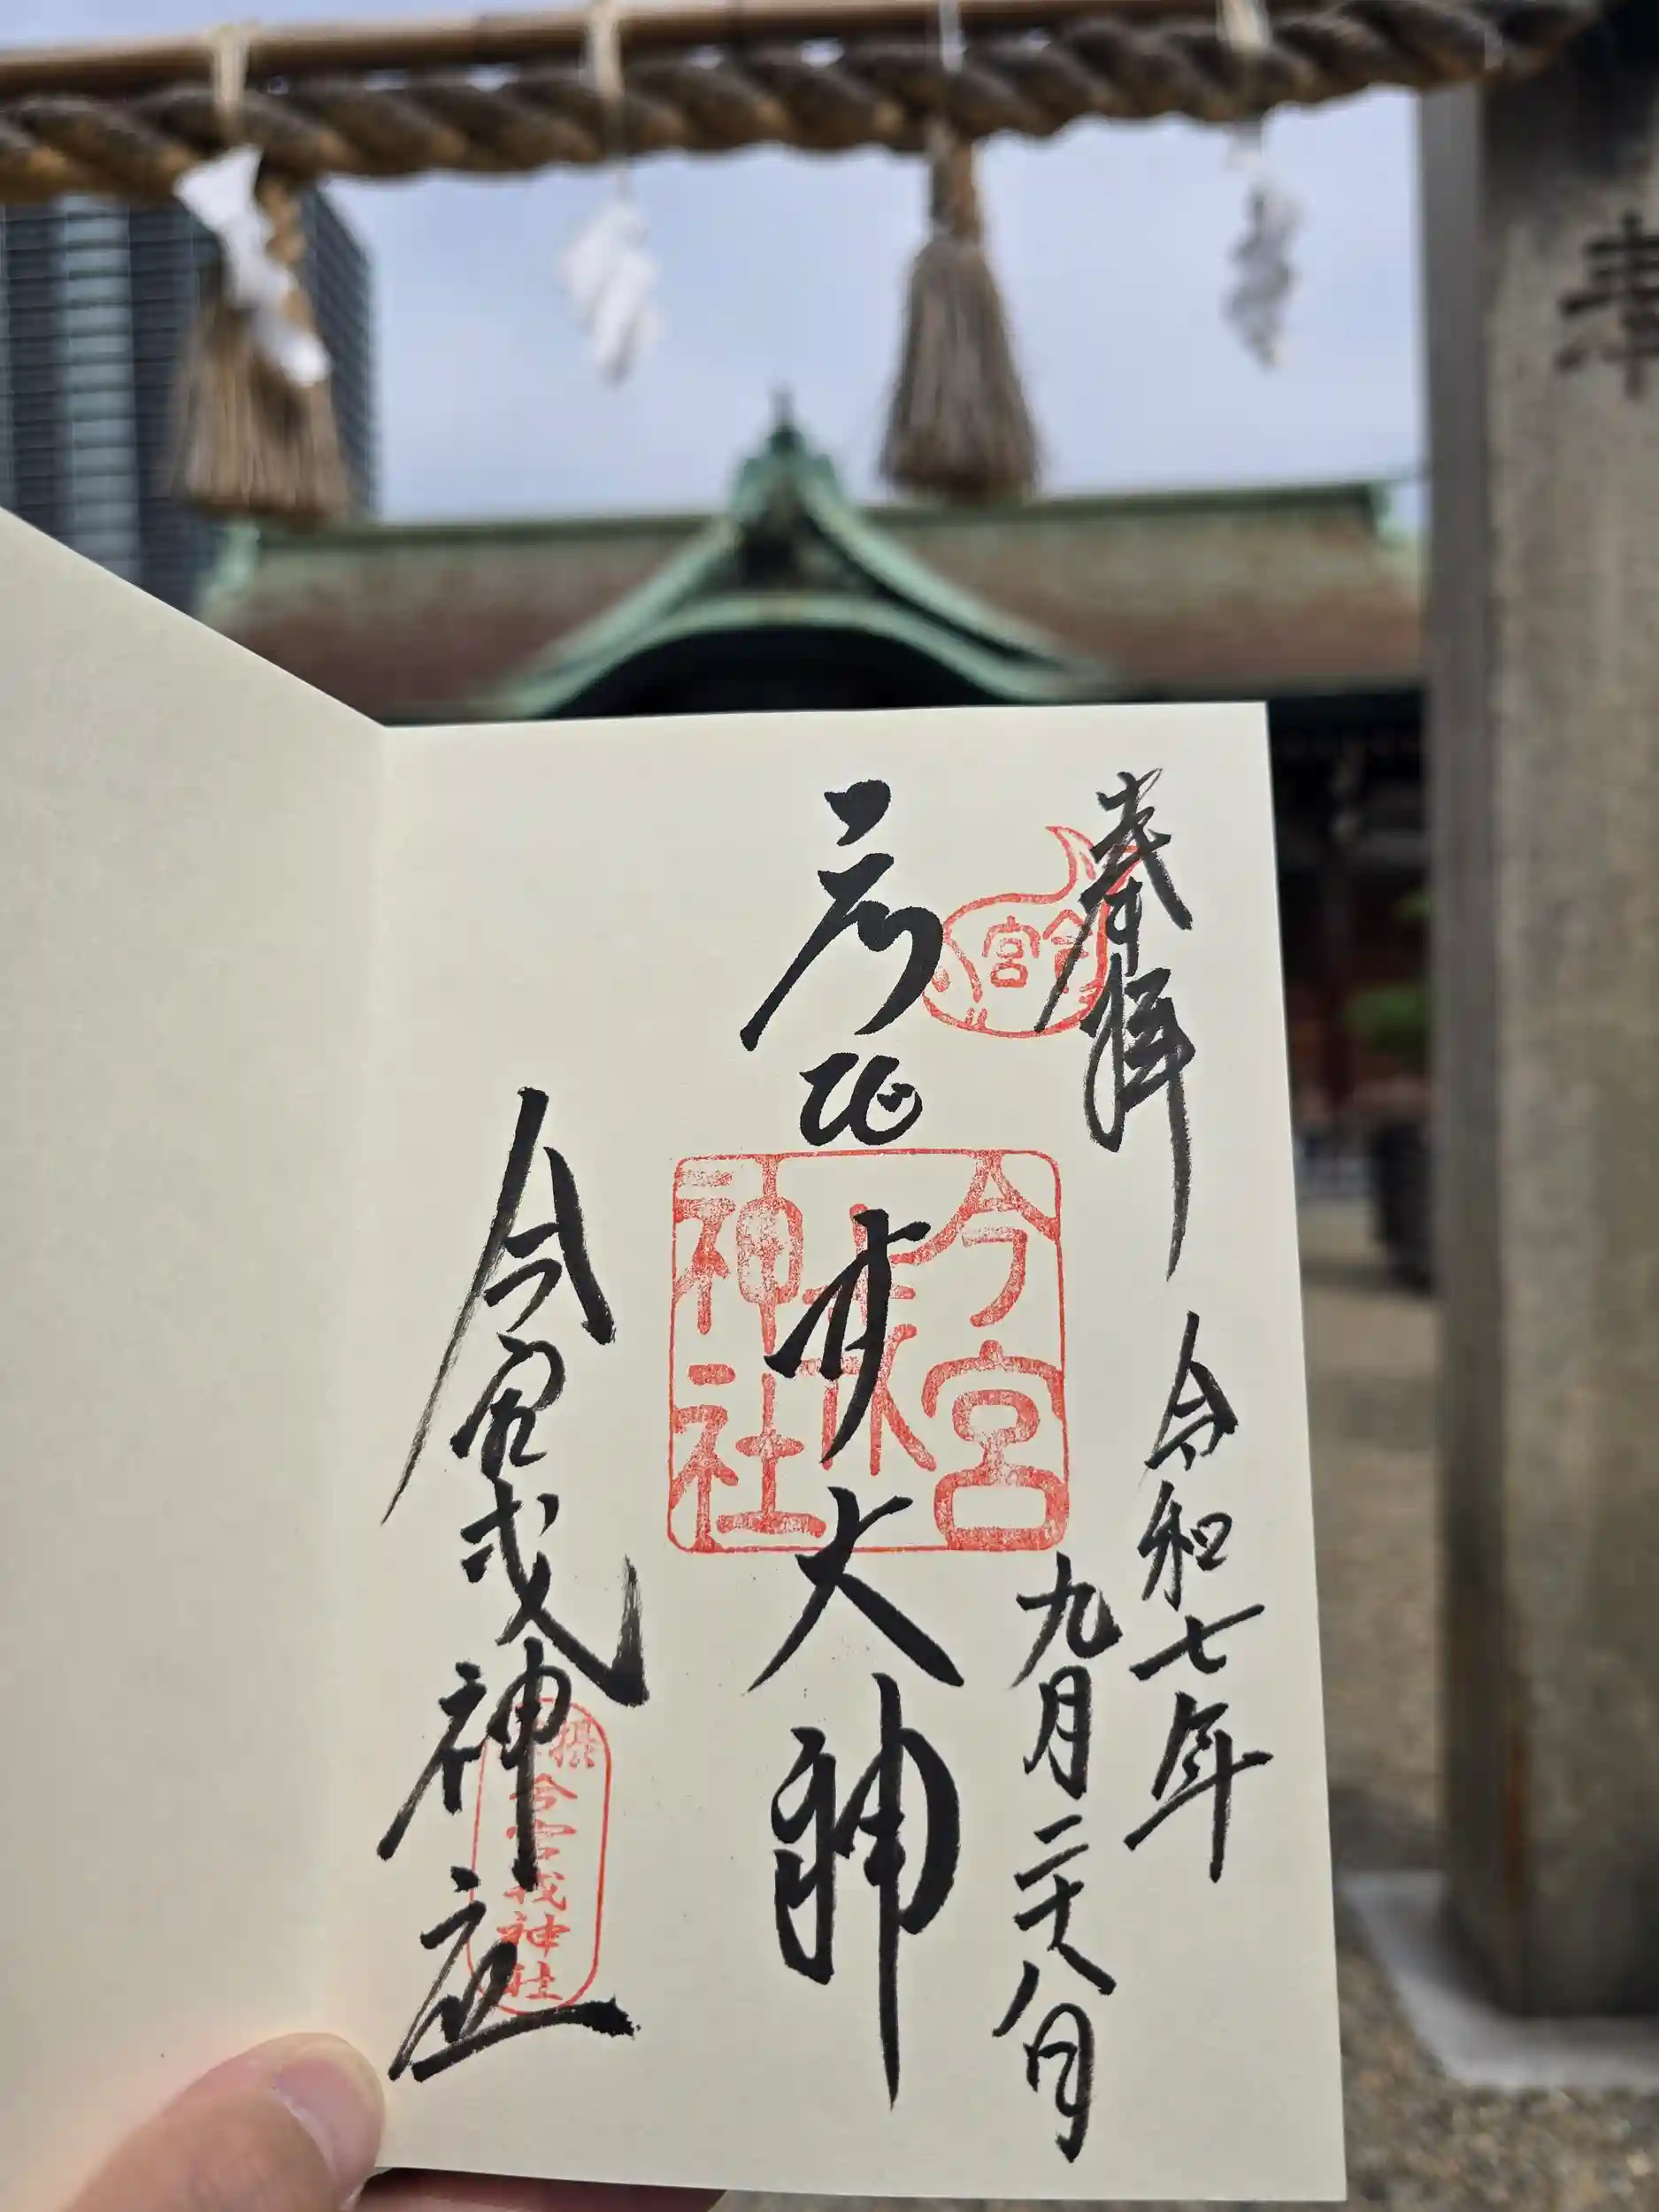 奉拝
今宮
令和七年
九月二十八日
比大神
今宮
神社
今宮戎神社
摂
今宮戎神社